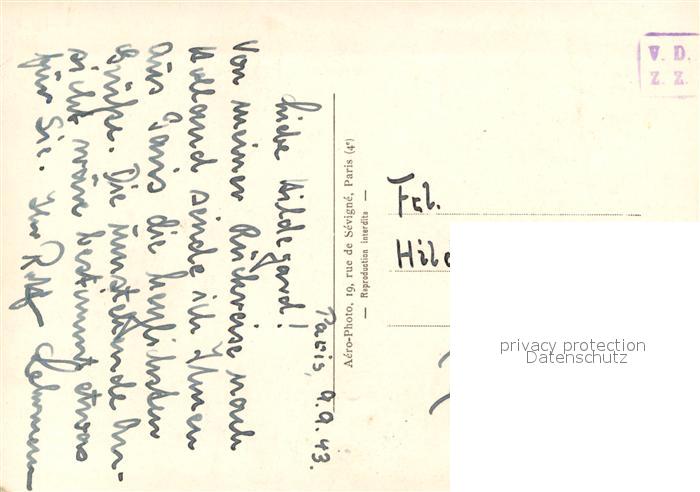 Paris, 9.9.43.
Liebe Hildegard!
Von meiner Rückreise nach
Holland sende ich Ihnen
aus Paris die herzlichsten
Grüße. Die umstehende An-
sicht wäre bestimmt etwas
für Sie. Ihr Rolf
Aéro-Photo, 19, rue de Sévigné, Paris (4e)
— Reproduction interdite —
V. D.
Z. Z.
Frl.
Hild
privacy protection
Datenschutz